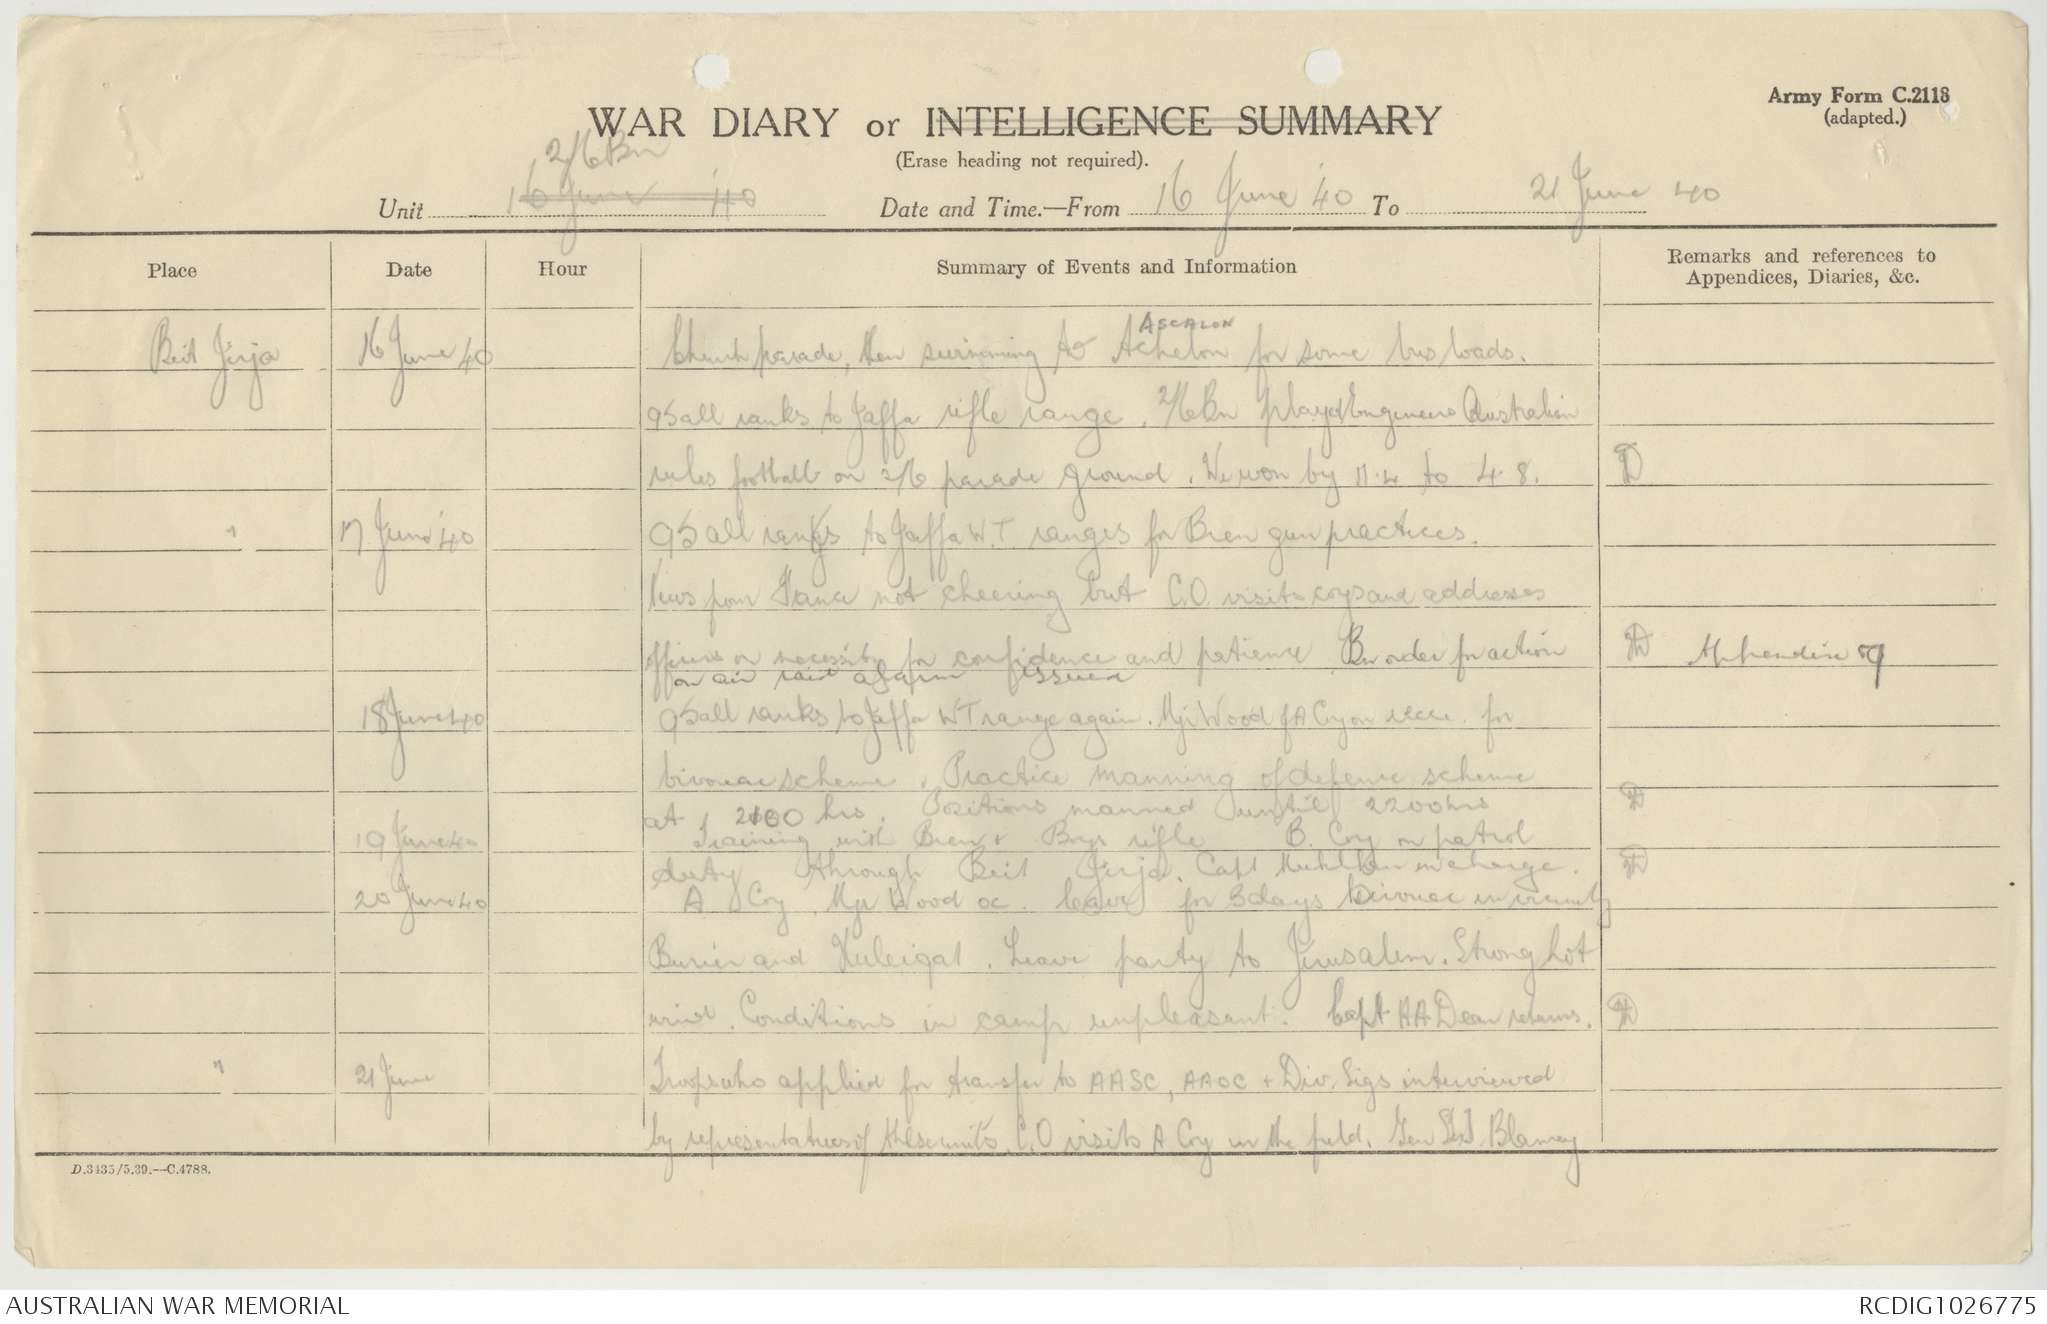 Army Form C.2118
(adapted.)
WAR DIARY or INTELLIGENCE SUMMARY
(Erase heading not required).
2/6 Bn
Unit 16 June '40 Date and Time.—From 16 June '40 To 21 June 40
Place Date Hour Summary of Events and Information Remarks and references to Appendices, Diaries, &c.
ASCALON
Beit Jirja 16 June 40 Church parade, then swimming to Achelon for some bus loads.
95 all ranks to Jaffa rifle range. 2/6 Bn played Engineers Australian
rules football on 2/6 parade ground. We won by 11.4 to 4.8.
" 17 June '40 95 all ranks to Jaffa W.T ranges for Bren gun practices.
News from France not cheering but C.O. visits coys and addresses
officers on necessity for confidence and patience Bn order for action Appendix 9
on air raid alarm issued
18 June 40 95 all ranks to Jaffa WT range again. Mjr Wood of A Coy on recce. for
bivouac scheme. Practice manning of defence scheme
at 2100 hrs. Positions manned until 2200 hrs
19 June 40 Training with Bren & Boys rifle B. Coy on patrol
duty through Beit Jirja. Capt in charge.
20 June 40 A Coy, Mjr Wood oc. leave for 3 days bivouac in vicinity
Burier and Huleigat. Leave party to Jerusalem. Strong hot
wind. Conditions in camp unpleasant. Capt AA Dean returns.
" 21 June Troops who applied for transfer to AASC, AAOC & Div. Sigs interviewed
by representatives of these units. C.O visits A Coy in the field. Gen Sir T. Blamey
D.3435/5.39.—C.4788.
AUSTRALIAN WAR MEMORIAL RCDIG1026775